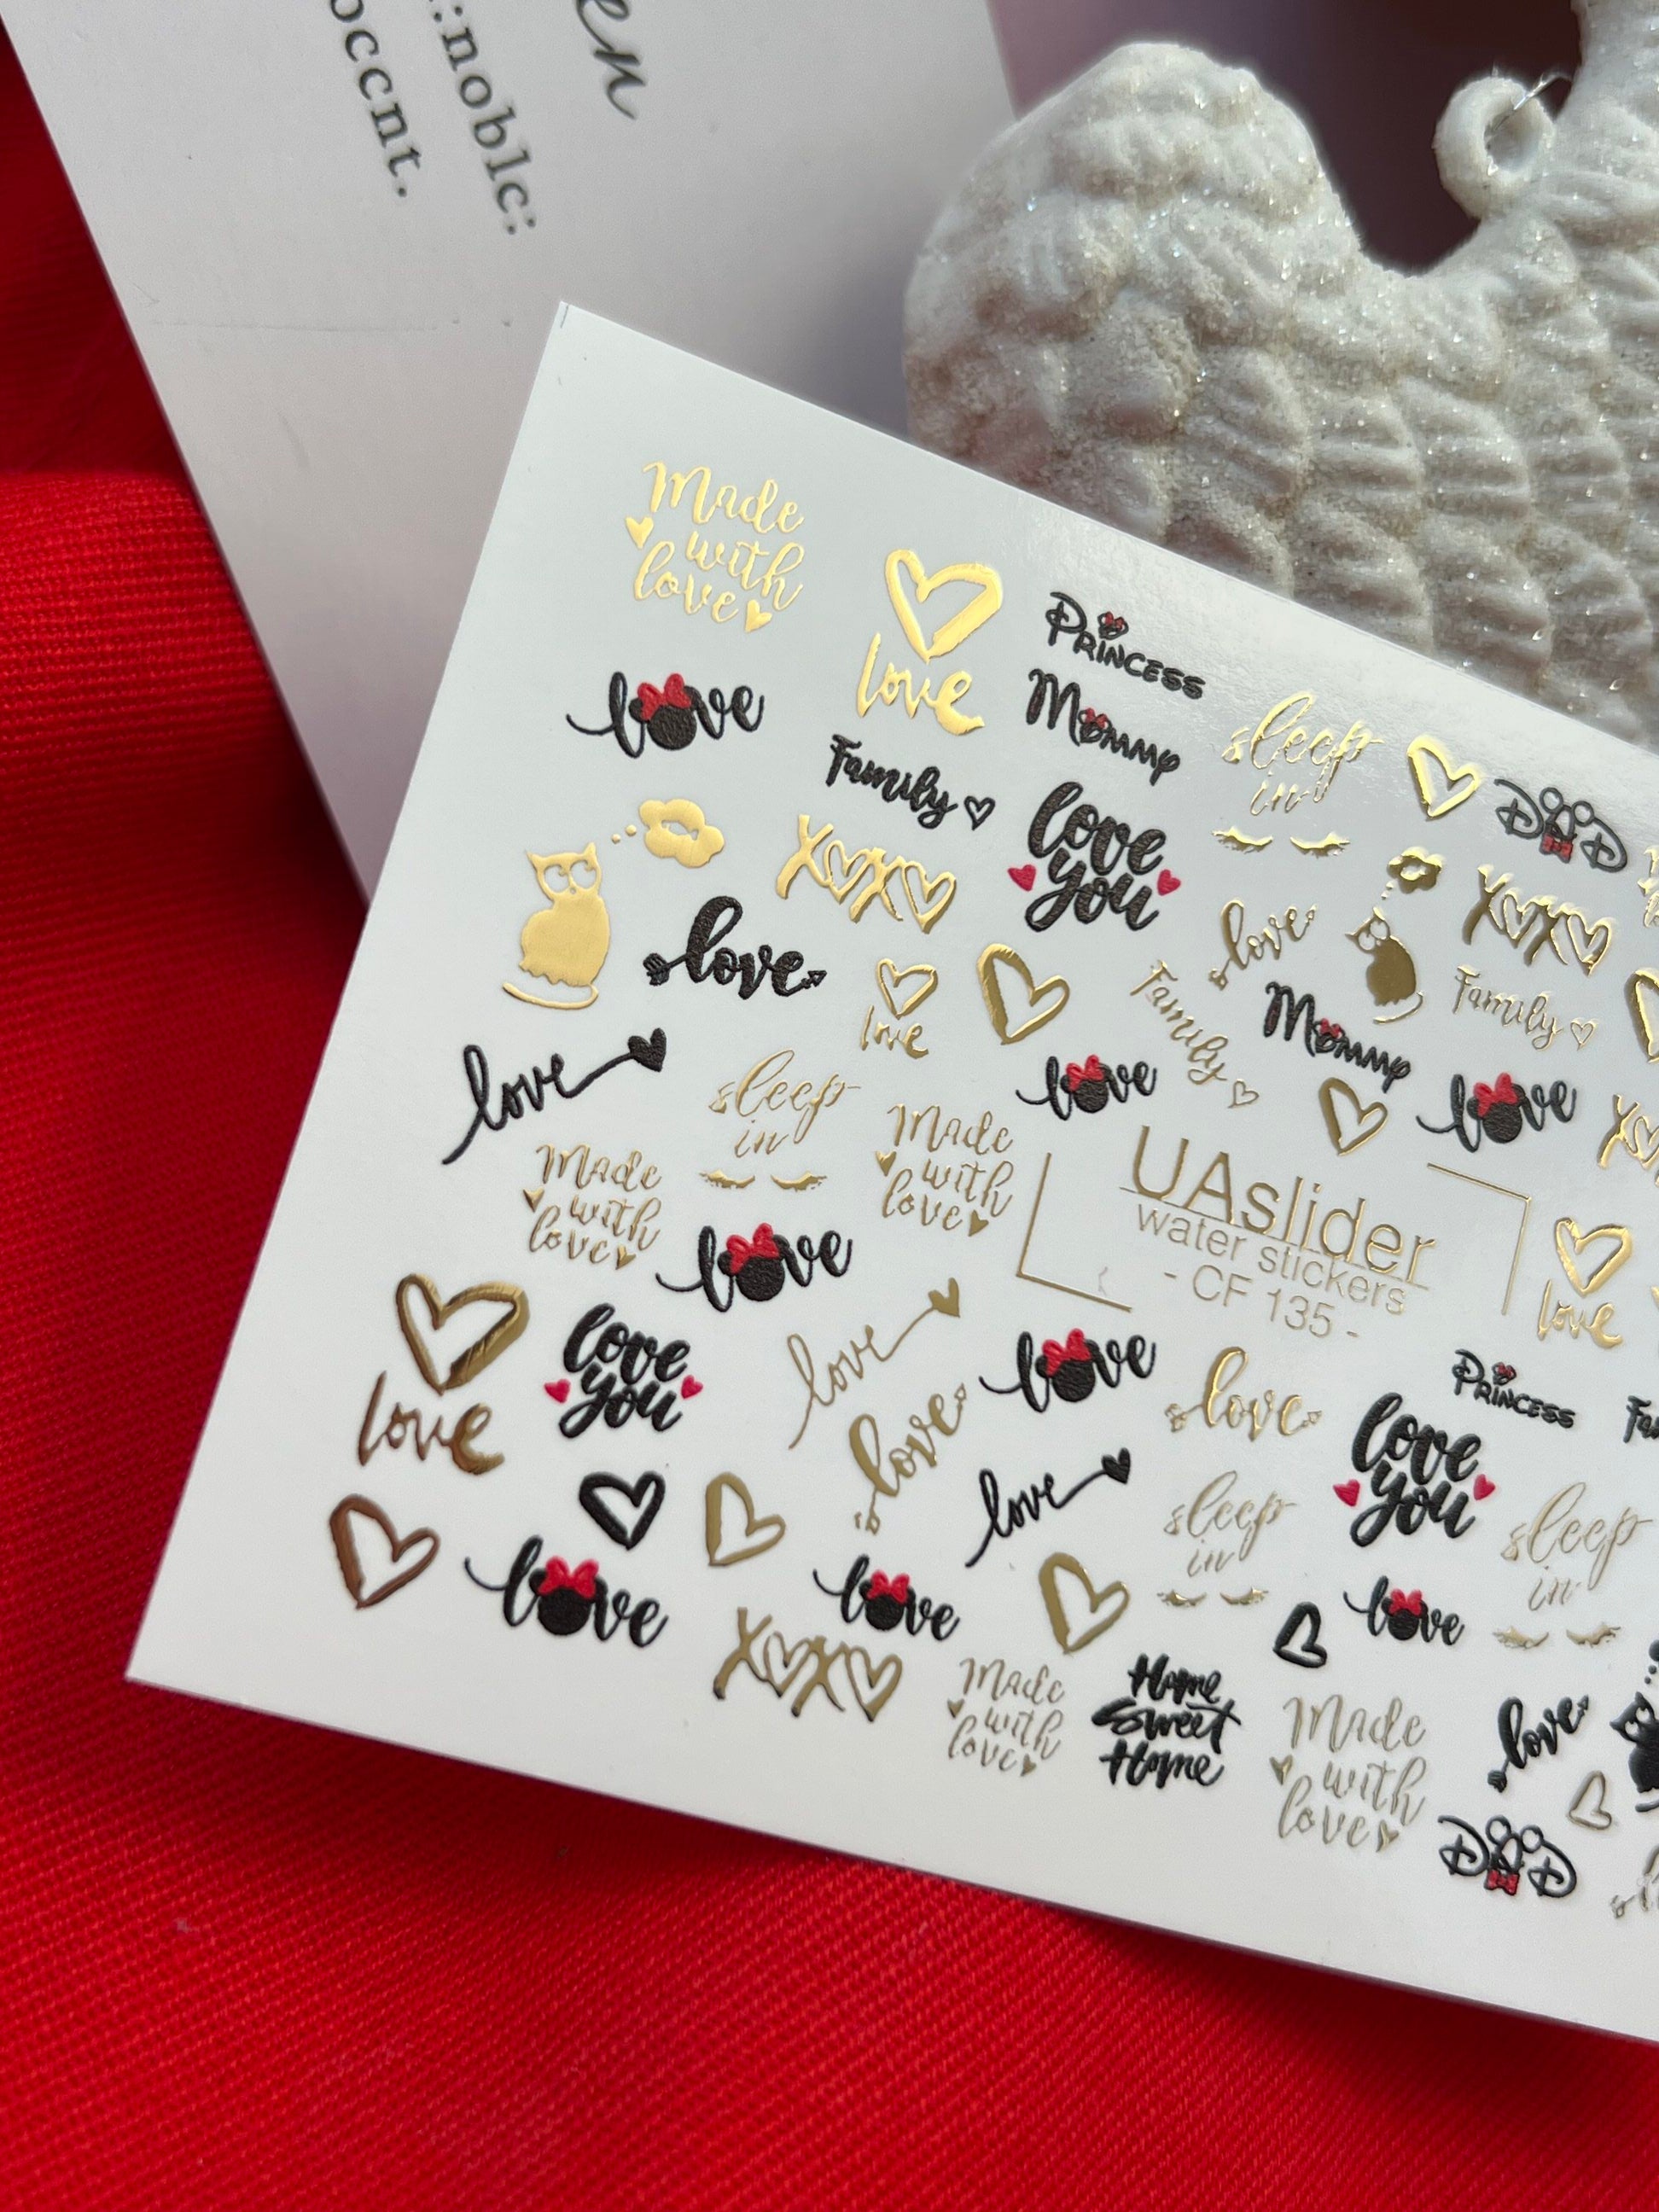 en
:noble:
occnt.
Made
with
love
love
Princess
love
Mommy
sleep
in
Family
love
you
DAD
XOXO
love
love
XOXO
love
Family
Family
Mommy
love
sleep
in
love
love
Made
with
love
Made
with
love
UAslider
water stickers
- CF 135 -
love
love
love
love
you
love
love
Princess
love
love
love
love
you
love
sleep
in
sleep
in
love
love
love
XOXO
Made
with
love
Home
Sweet
Home
Made
with
love
love
DAD